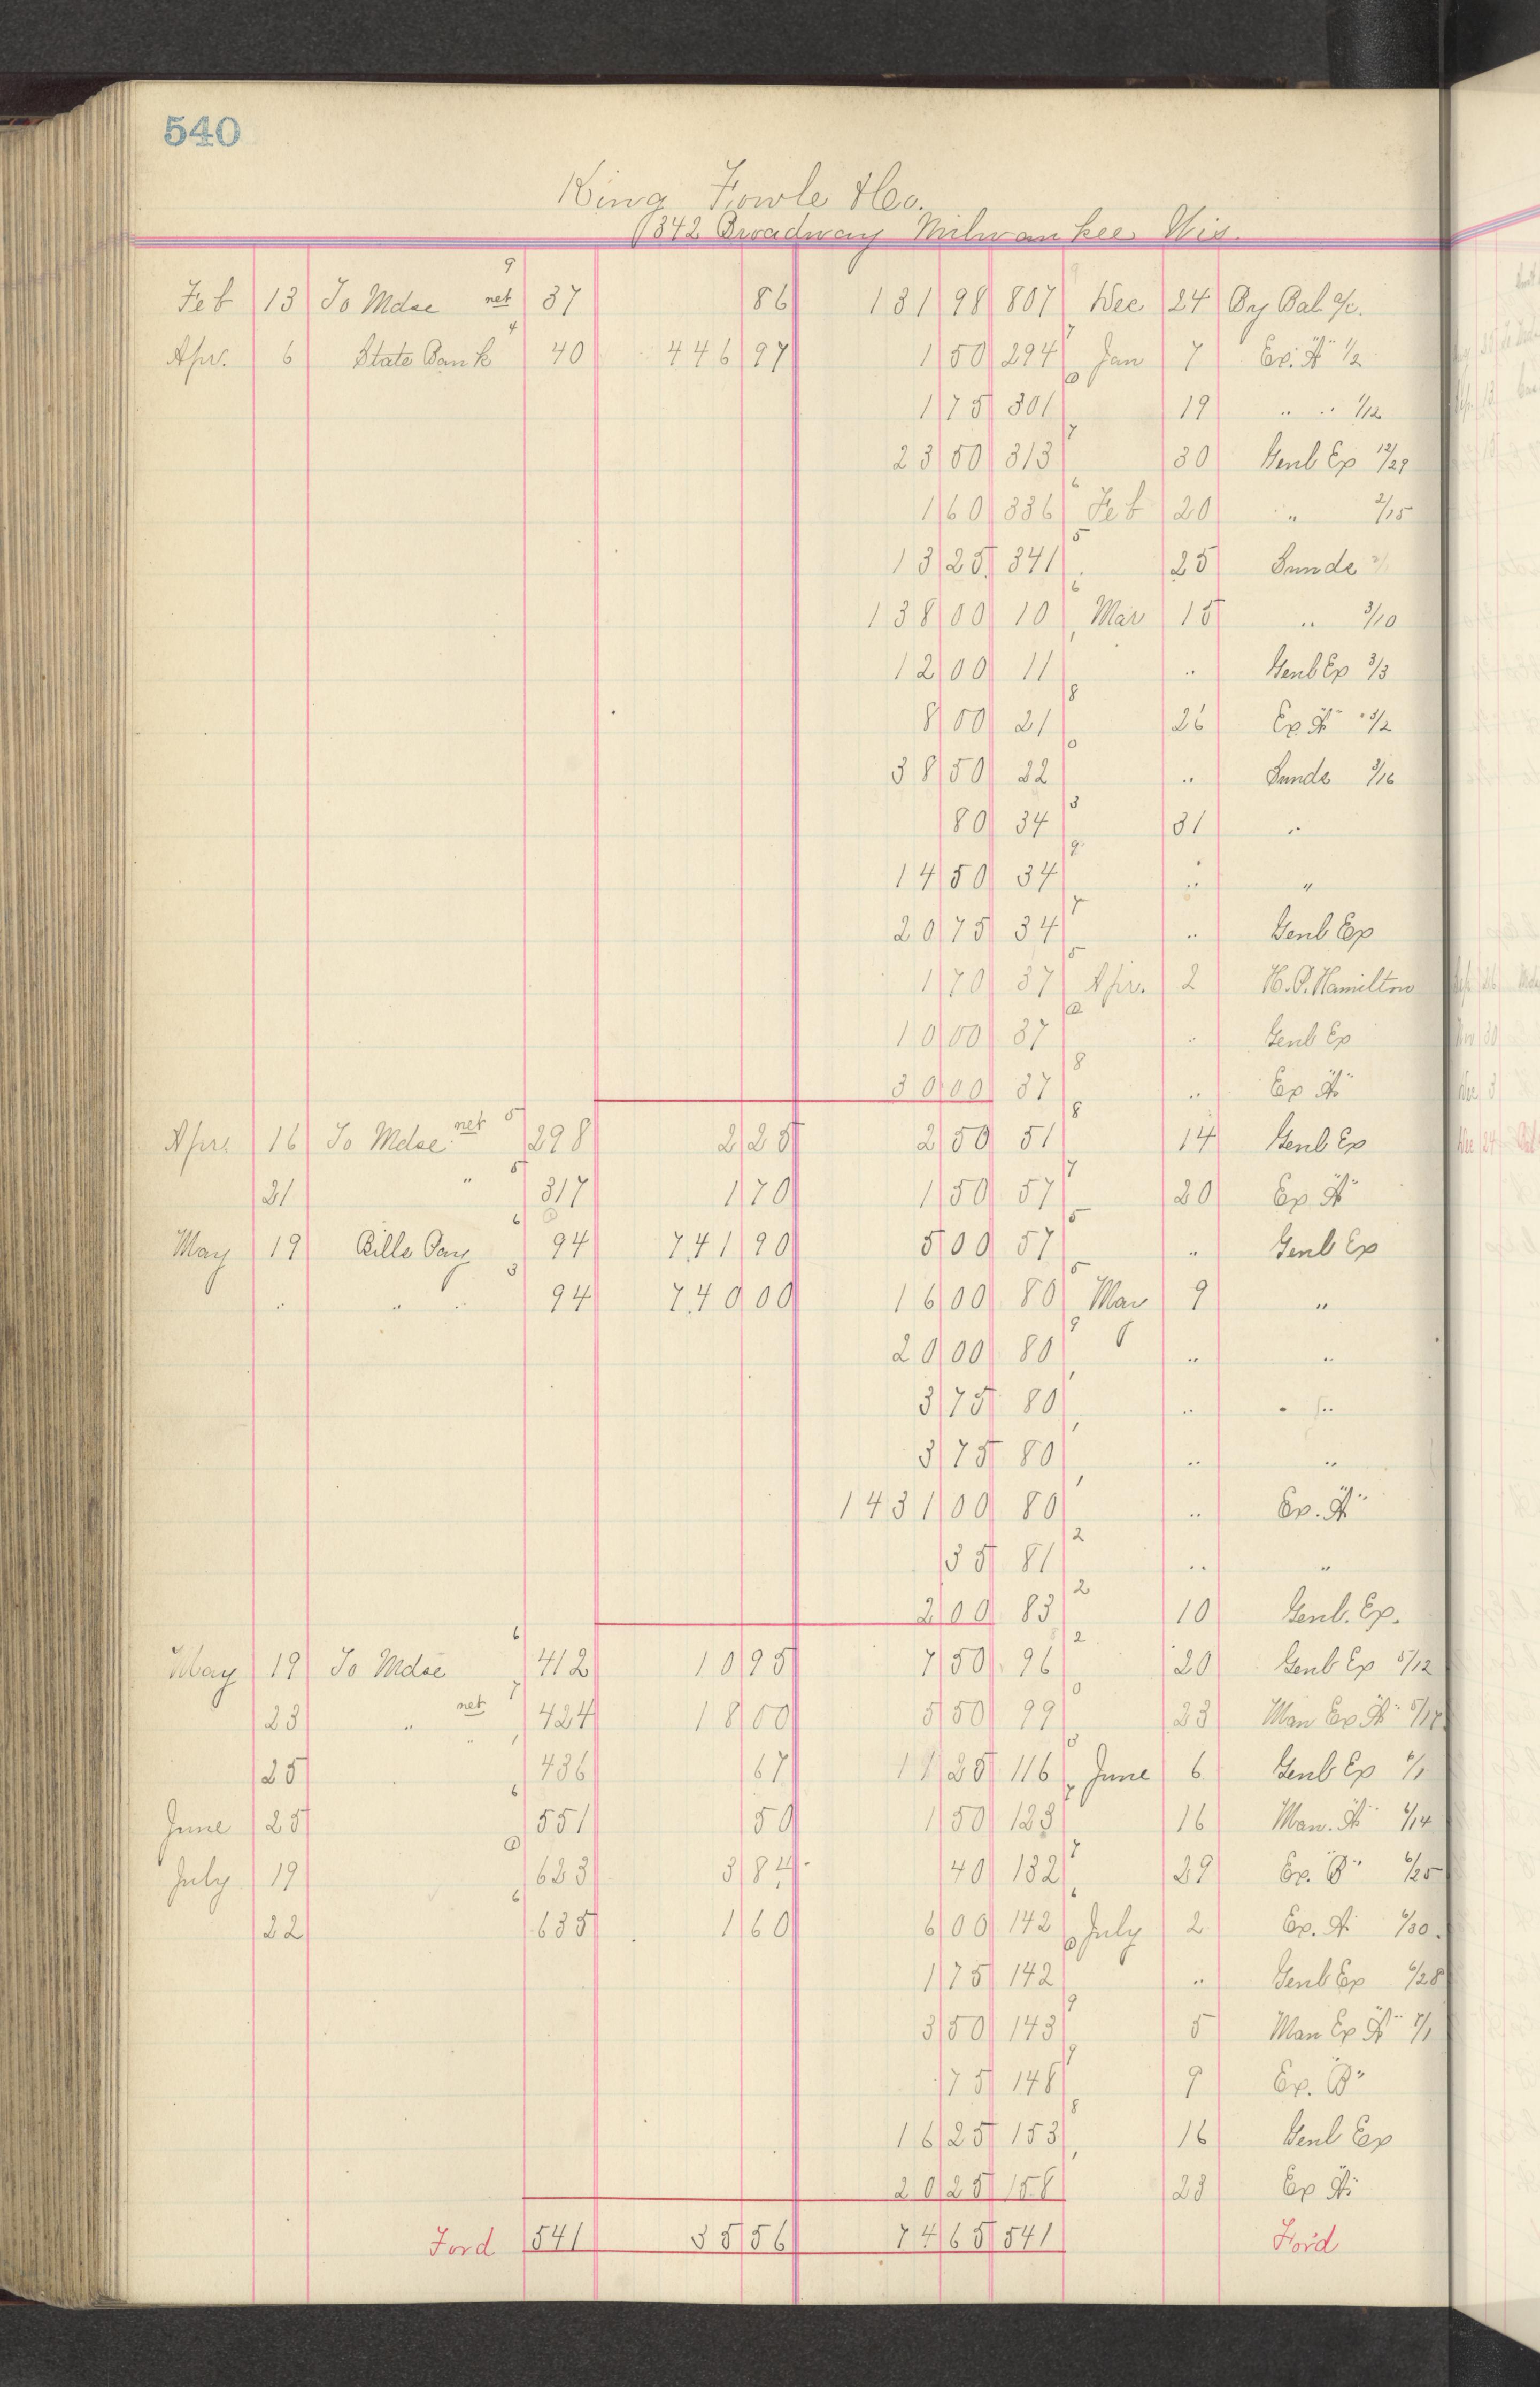 540
King Fowle & Co.
342 Broadway Milwaukee Wis.
Feb 13 To Mdse net 9 37 86 131 98 307 Dec 24 By Bal a/c.
Apr. 6 State Bank 4 40 446 97 1 50 294 7 Jan 7 Ex. "A" 1/2
1 75 301 0 19 " " 1/12
23 50 313 7 30 Genl Ex 12/29
1 60 336 6 Feb 20 " 2/15
13 25 341 5 25 Sunds
138 00 10 6 Mar 15 " 3/10
12 00 11 1 " Genl Ex 3/3
8 00 21 8 26 Ex "A" 3/2
38 50 22 0 " Sunds 3/16
80 34 3 31 "
14 50 34 9 " "
20 75 34 7 " Genl Ex
1 70 37 5 Apr. 2 H. P. Hamilton
10 00 37 0 " Genl Ex
30 00 37 8 " Ex "A"
Apr. 16 To Mdse net 5 298 2 25 2 50 51 8 14 Genl Ex
21 " 5 317 1 70 1 50 57 7 20 Ex "A"
May 19 Bills Pay 6 94 741 90 5 00 57 5 " Genl Ex
" " " 3 94 740 00 16 00 80 5 May 9 "
20 00 80 9 " "
3 75 80 1 " "
3 75 80 1 " "
1431 00 80 1 " Ex. "A"
35 81 2 " "
2 00 83 2 10 Genl. Ex.
May 19 To Mdse 6 412 10 95 7 50 96 2 20 Genl Ex 5/12
23 " net 7 424 18 00 5 50 99 0 23 Man Ex "A" 5/17
25 1 436 67 11 25 116 3 June 6 Genl Ex 6/1
June 25 6 551 50 1 50 123 7 16 Man. "A" 6/14
July 19 0 623 3 84 40 132 7 29 Ex. "B" 6/25
22 6 635 1 60 6 00 142 6 July 2 Ex. A. 6/30.
1 75 142 0 " Genl Ex 6/28
3 50 143 9 5 Man Ex "A" 7/1
75 148 9 9 Ex. "B"
16 25 153 8 16 Genl Ex
20 25 158 1 23 Ex A
Ford 541 35 56 74 65 541 Ford